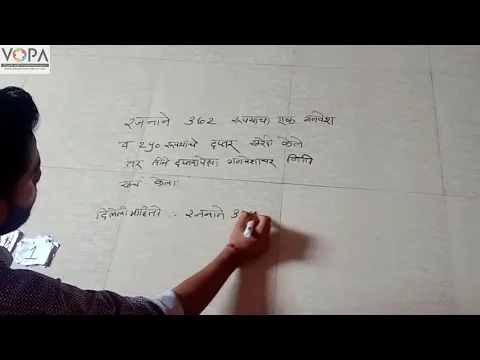 VOPA
रजनाने 362 रुपयांचा एक गणवेश
व 240 रुपयांचे दप्तर खरेदी केले
तर तीने दप्तरापेक्षा गणवेशावर किती
खर्च केला
दिलेली माहिती :- रजनाने 3
1